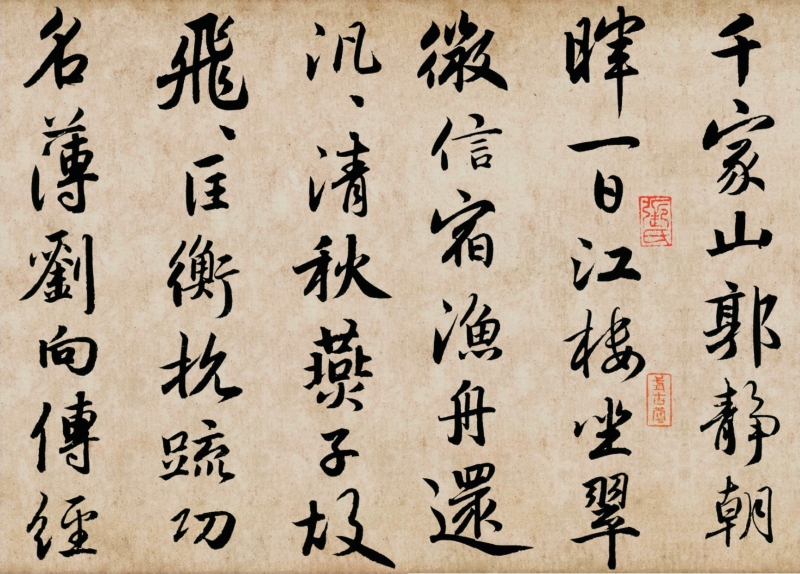 千家山郭靜朝
暉一日江樓坐翠
微信宿漁舟還
汎〻清秋燕子故
飛〻匡衡抗疏功
名薄劉向傳經